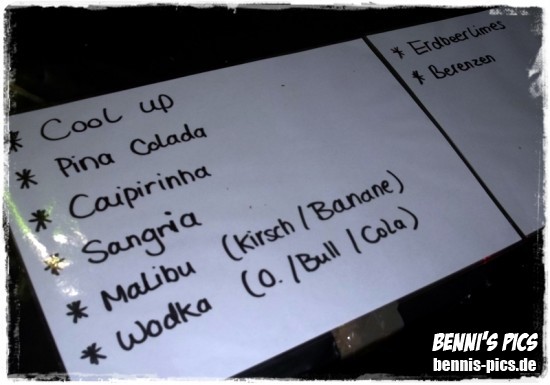 * Cool up
* Pina Colada
* Caipirinha
* Sangria
* Malibu (Kirsch / Banane)
* Wodka (O. / Bull / Cola)
* Erdbeerlimes
* Berenzen
BENNI'S PICS
bennis-pics.de